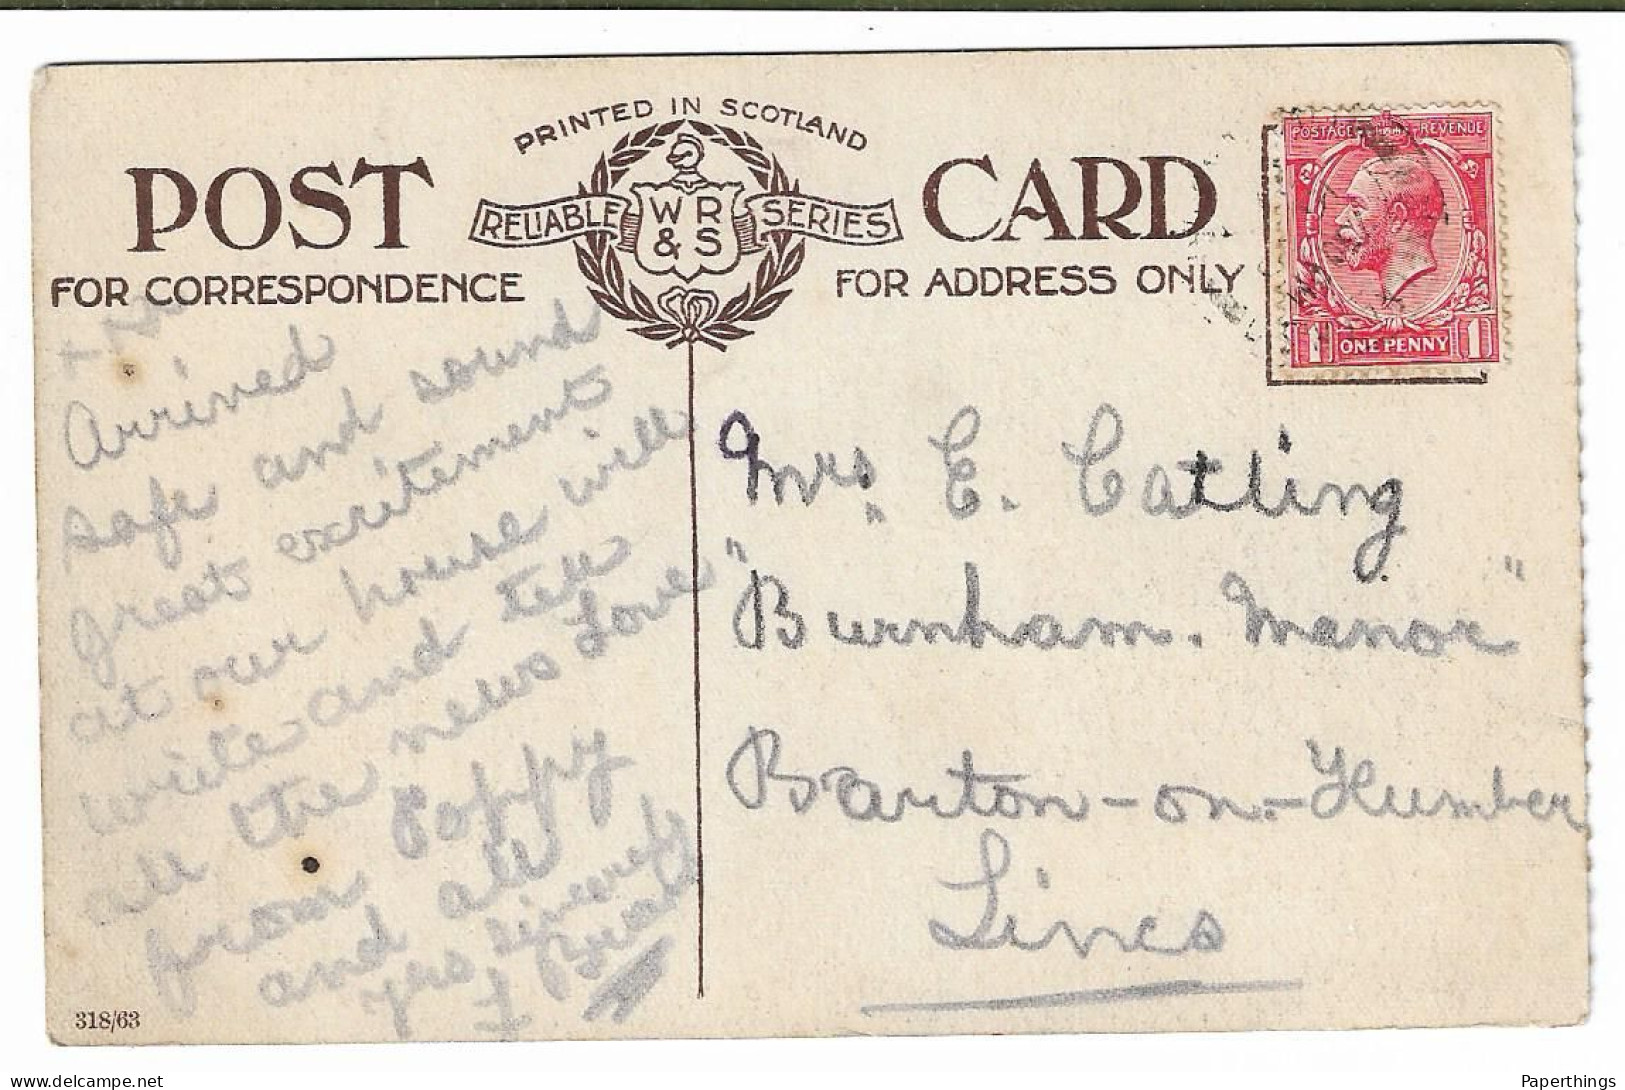 PRINTED IN SCOTLAND
POST CARD
RELIABLE W R & S SERIES
FOR CORRESPONDENCE
FOR ADDRESS ONLY
POSTAGE REVENUE
1 ONE PENNY 1
Arrived
safe and sound
great excitement
at our house will
write and tell
all the news Love
from Poppy
and all
yrs sincerely
Mrs. E. Catling
"Burnham. Manor"
Barton-on-Humber
Lincs
318/63
Paperthings